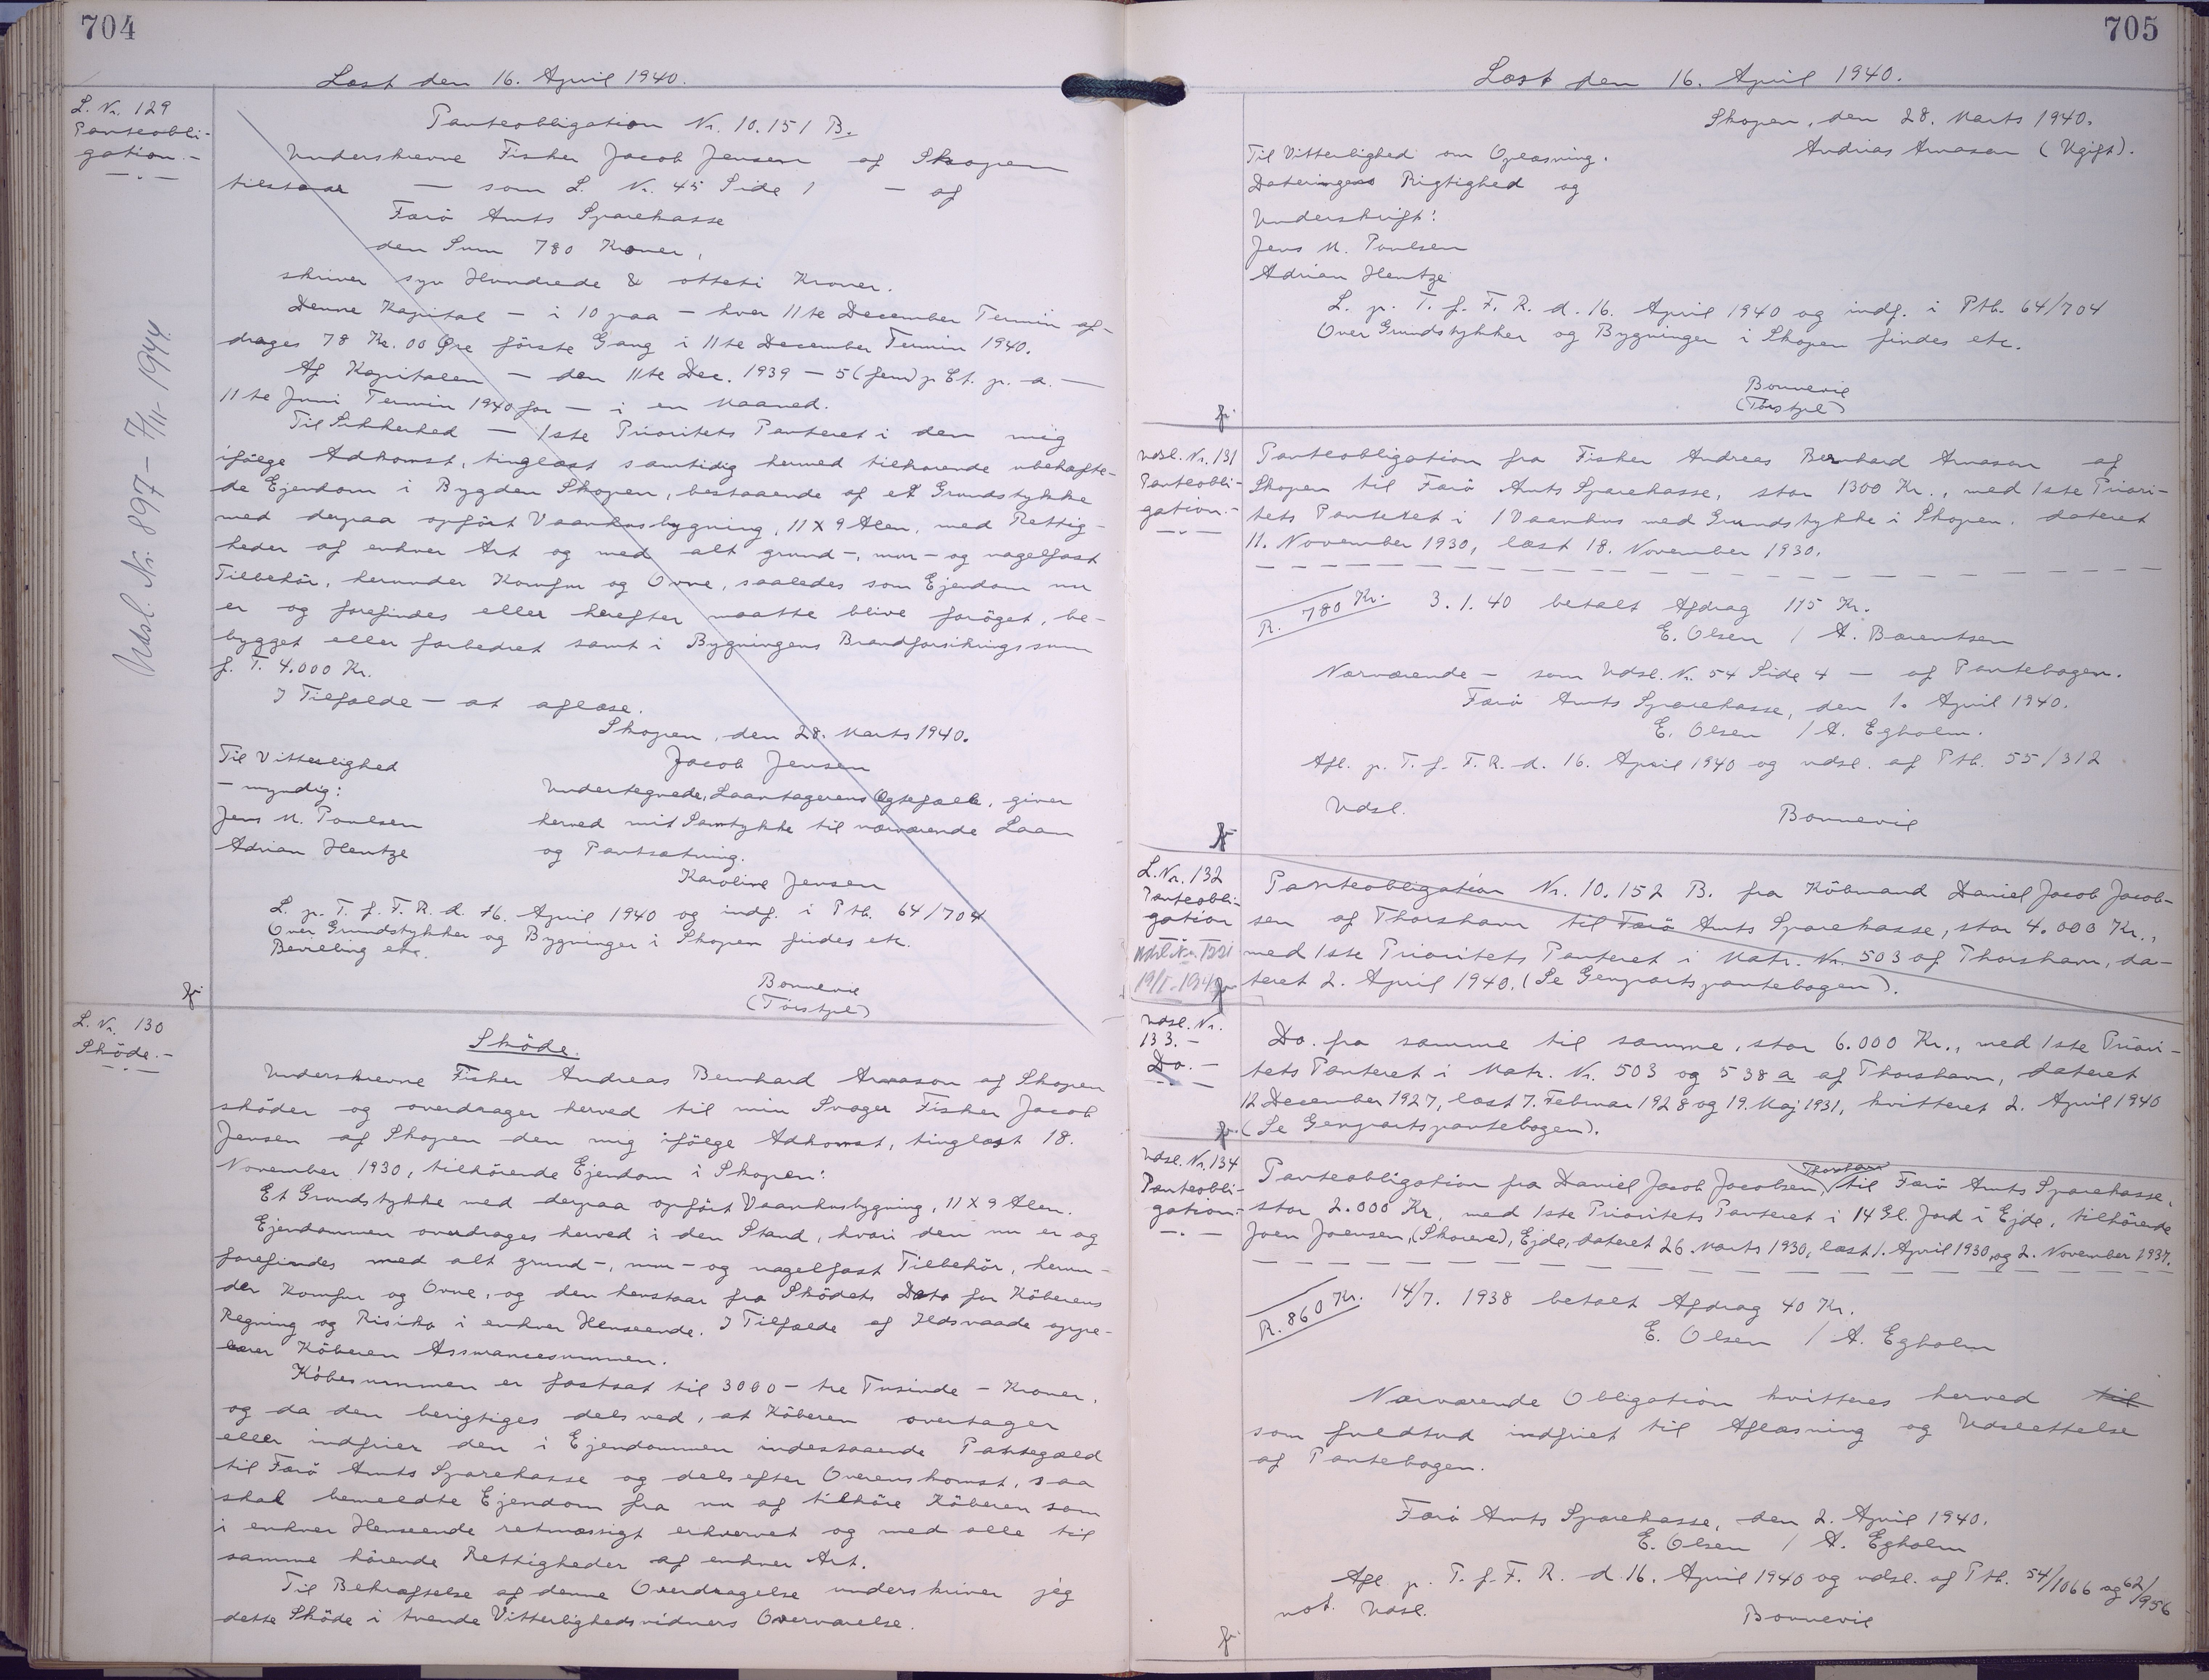 704
Læst den 16. April 1940.
L. Nr. 129
Panteobli-
gation.-
Udsl. Nr. 897 - 7/11 1944.
Panteobligation Nr. 10.151 B.
Underskrevne Fisker Jacob Jensen af Skopen
tilstaar — som L. Nr. 45 Side 1 — af
Færö Amts Sparekasse
den Sum 780 Kroner,
skriver syv Hundrede & otteti Kroner.
Denne Kapital — i 10 paa — hver 11te December Termin af-
drages 78 Kr. 00 Øre förste Gang i 11te December Termin 1940.
Af Kapitalen — den 11te Dec. 1939 — 5 (fem) p Ct. p. a. —
11te Juni Termin 1940 for — i en Maaned.
Til Sikkerhed — 1ste Prioritets Panteret i den mig
ifölge Adkomst, tinglæst samtidig hermed tilhörende ubehæfte-
de Ejendom i Bygden Skopen, bestaaende af et Grundstykke
med derpaa opfört Vaaanhusbygning, 11 X 9 Alen, med Rettig-
heder af enhver Art og med alt grund-, mur- og nagelfast
Tilbehör, herunder Komfur og Ovne, saaledes som Ejendom nu
er og forefindes eller herefter maatte blive foröget, be-
bygget eller forbedret samt i Bygningens Brandforsikringssum
f. T. 4.000 Kr.
I Tilfælde — at aflæse.
Skopen, den 28. Marts 1940.
Til Vitterlighed
Jacob Jensen
- myndig:
Undertegnede, Laantagerens Ægtefælle, giver
Jens M. Poulsen
herved mit Samtykke til nærværende Laan
Adrian Hentze
og Pantsætning.
Karoline Jensen
L. p. T. f. F. R. d. 16. April 1940 og indf. i Ptb. 64/704
Over Grundstykker og Bygninger i Skopen findes etc.
Bevilling etc.
Bonnevie
(Torstpl)
L. Nr. 130
Sköde.-
Sköde.
Underskrevne Fisker Andreas Bernhard Arnason af Skopen
sköder og overdrager herved til min Svoger Fisker Jacob
Jensen af Skopen den mig ifölge Adkomst, tinglæst 18.
November 1930, tilhörende Ejendom i Skopen:
Et Grundstykke med derpaa opfört Vaanhusbygning, 11 X 9 Alen.
Ejendommen overdrages herved i den Stand, hvori den nu er og
forefindes med alt grund-, mur- og nagelfast Tilbehör, herun-
der Komfur og Ovne, og den henstaar fra Sködets Dato for Köberens
Regning og Risiko i enhver Henseende. I Tilfælde af Ildsvaade oppe-
bærer Köberen Assurancesummen.
Köbesummen er fastsat til 3000 - tre Tusinde - Kroner,
og da den berigtiges dels ved, at Köberen overtager
eller indfrier den i Ejendommen indestaaende Pantegæld
til Færö Amts Sparekasse og dels efter Overenskomst, saa
skal bemeldte Ejendom fra nu af tilhöre Köberen som
i enhver Henseende retmæssigt erhvervet og med alle til
samme hörende Rettigheder af enhver Art.
Til Bekræftelse af denne Overdragelse underskriver jeg
dette Sköde i tvende Vitterlighedsvidners Overværelse.
705
Læst den 16. April 1940.
Skopen, den 28. Marts 1940.
Andrias Arnason (Ugift).
Til Vitterlighed om Oplæsning.
Dateringens Rigtighed og
Underskrift:
Jens M. Poulsen
Adrian Hentze
L. p. T. f. F. R. d. 16. April 1940 og indf. i Ptb. 64/704
Over Grundstykker og Bygninger i Skopen findes etc.
Bonnevie
(Torstpl)
Udsl. Nr. 131
Panteobli-
gation.-
Panteobligation fra Fisker Andreas Bernhard Arnason af
Skopen til Færö Amts Sparekasse, stor 1300 Kr., med 1ste Priori-
tets Panteret i 1 Vaanhus med Grundstykke i Skopen, dateret
11. November 1930, læst 18. November 1930.
R. 780 Kr. 3.1.40 betalt Afdrag 115 Kr.
E. Olsen / A. Bærentsen
Nærværende — som Udsl. Nr. 54 Side 4 — af Pantebogen.
Færö Amts Sparekasse, den 1. April 1940.
E. Olsen / A. Egholm.
Afl. p. T. f. F. R. d. 16. April 1940 og udsl. af Ptb. 55/312
Udsl.
Bonnevie
L. Nr. 132
Panteobli-
gation
Panteobligation Nr. 10.152 B. fra Köbmand Daniel Jacob Jacob-
sen af Thorshavn til Færö Amts Sparekasse, stor 4.000 Kr.,
med 1ste Prioritets Panteret i Matr. Nr. 503 af Thorshavn, da-
teret 2. April 1940. (Se Genpartspantebogen).
Udsl. Nr.
133.-
Do.-
Do. fra samme til samme, stor 6.000 Kr., med 1ste Priori-
tets Panteret i Matr. Nr. 503 og 538 a af Thorshavn, dateret
12 December 1927, læst 7. Februar 1928 og 19. Maj 1931, kvitteret 2. April 1940
(Se Genpartspantebogen).
Udsl. Nr. 134
Panteobli-
gation.-
Panteobligation fra Daniel Jacob Jacobsen, Thorshavn til Færö Amts Sparekasse,
stor 2.000 Kr., med 1ste Prioritets Panteret i 14 Gl. Jord i Ejde, tilhörende
Joen Joensen, (Skorene), Ejde, dateret 26. Marts 1930, læst 1. April 1930, og 2. November 1937.
R. 860 Kr. 14/7. 1938 betalt Afdrag 40 Kr.
E. Olsen / A. Egholm
Nærværende Obligation kvitteres herved til
som fuldtud indfriet til Aflæsning og Udslettelse
af Pantebogen.
Færö Amts Sparekasse, den 2. April 1940.
E. Olsen / A. Egholm
Afl. p. T. f. F. R. d. 16. April 1940 og udsl. af Ptb. 54/1066 og 62/956
not. Udsl.
Bonnevie